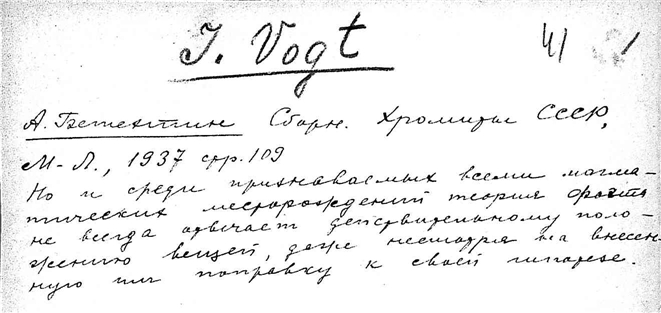 J. Vogt 41
А. Бетехтин Сборн. Хромиты СССР,
М-Л., 1937 стр. 109
Но и среди признаваемых всеми магма-
тических месторождений теория Фогта
не всегда отвечает действительному поло-
жению вещей, даже несмотря на внесен-
ную им поправку к своей гипотезе.